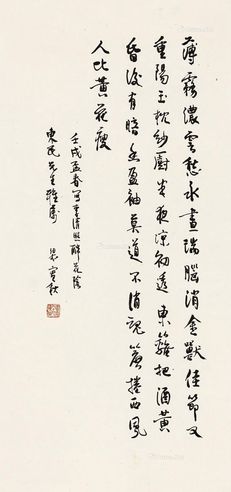 薄霧濃雲愁永晝瑞腦消金獸佳節又
重陽玉枕紗廚半夜涼初透東籬把酒黃
昏後有暗香盈袖莫道不消魂簾捲西風
人比黃花瘦
壬戌孟春寫李清照醉花陰
東民先生雅屬
梁實秋